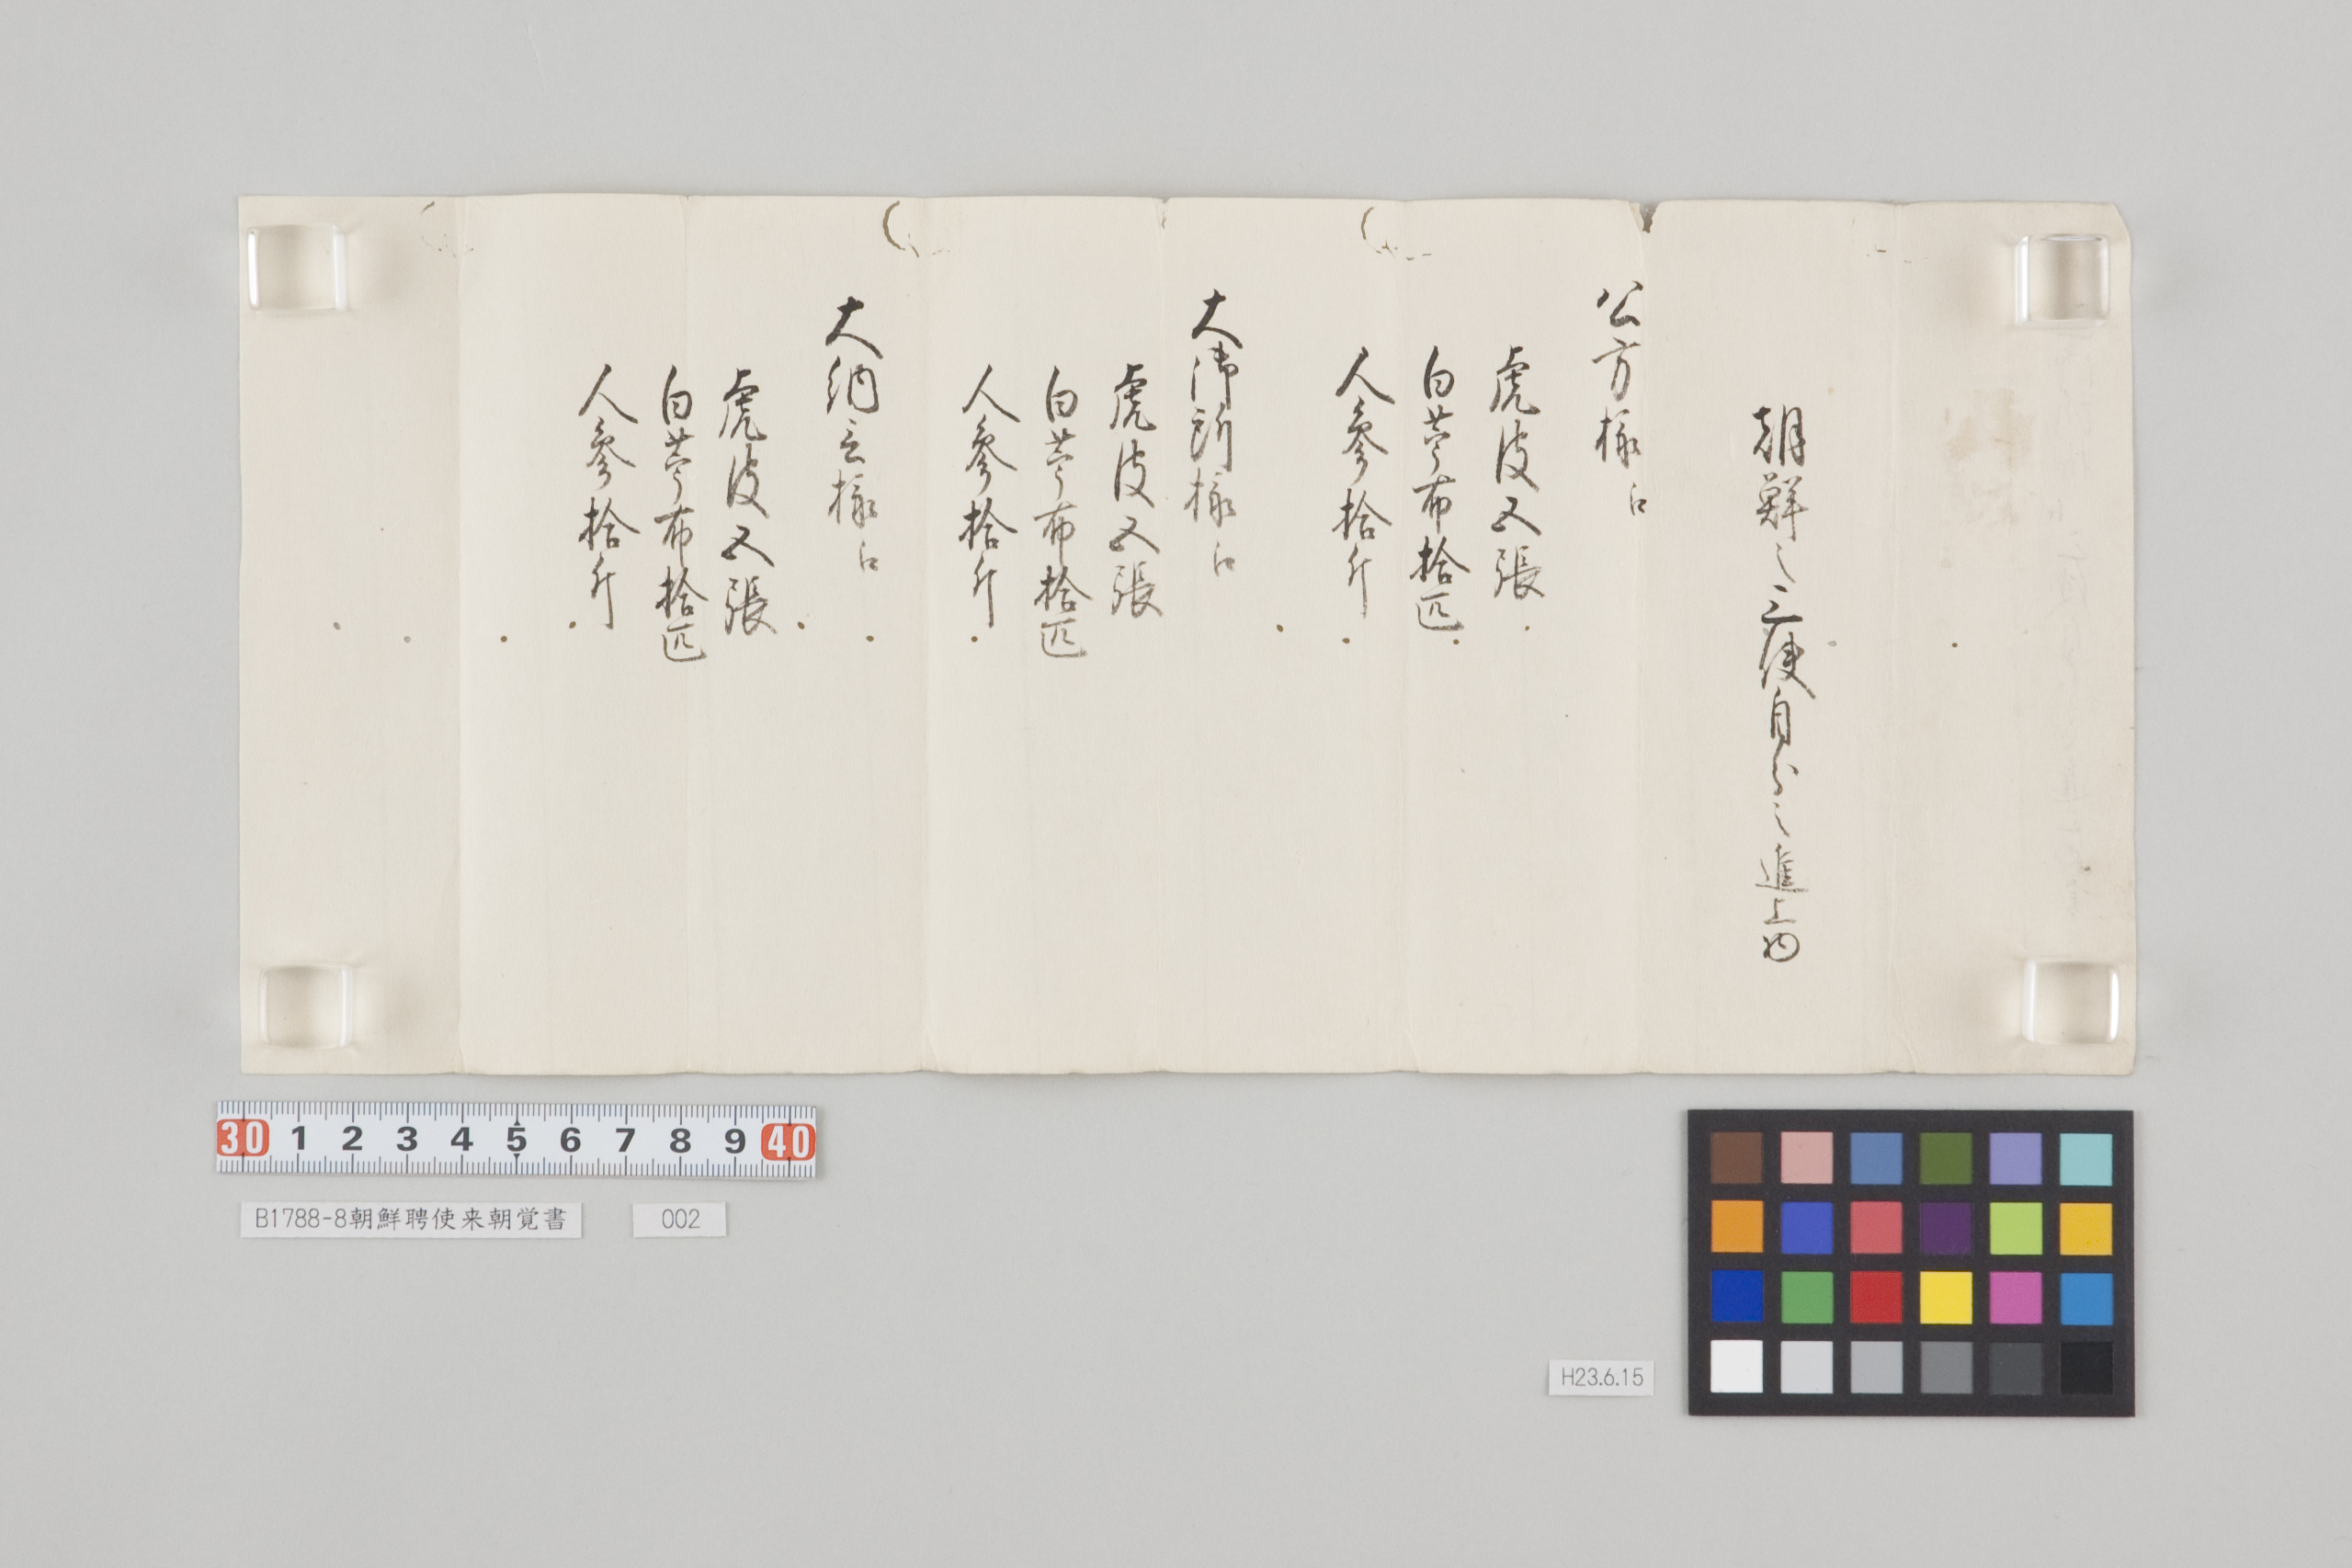 朝鮮之三使自分之進上物
公方様江
虎皮五張
白苧布拾匹
人参拾斤
大御所様江
虎皮五張
白苧布拾匹
人参拾斤
大納言様江
虎皮五張
白苧布拾匹
人参拾斤
30 1 2 3 4 5 6 7 8 9 40
B1788-8朝鮮聘使来朝覚書
002
H23.6.15